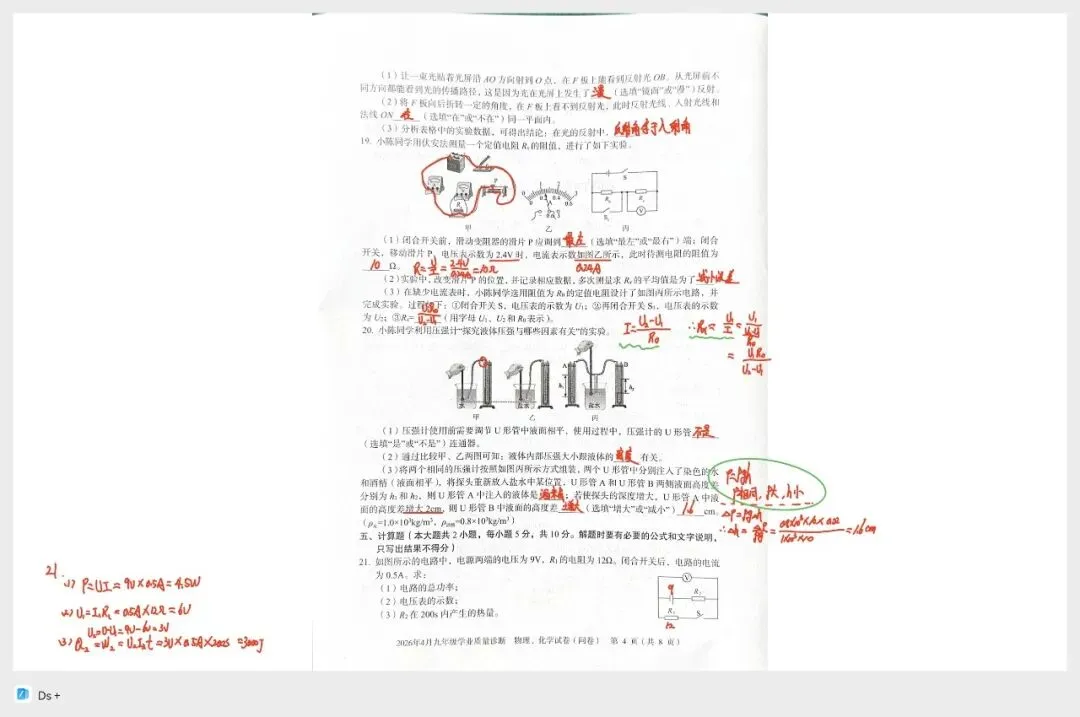 (1)让一束光贴着光屏沿 AO 方向射到 O 点，在 F 板上能看到反射光 OB。从光屏前不
同方向都能看到光的传播路径，这是因为光在光屏上发生了 漫 (选填“镜面”或“漫”)反射。
(2)将 F 板向后折转一定的角度，在 F 板上看不到反射光，此时反射光线、入射光线和
法线 ON 在 (选填“在”或“不在”)同一平面内。
(3)分析表格中的实验数据，可得出结论：在光的反射中， 反射角等于入射角
19. 小陈同学用伏安法测量一个定值电阻 Rₓ的阻值，进行了如下实验。
甲 乙 丙
(1)闭合开关前，滑动变阻器的滑片 P 应调到 最左 (选填“最左”或“最右”)端；闭合
开关，移动滑片 P，电压表示数为 2.4V 时，电流表示数如图乙所示，此时待测电阻的阻值为
10 Ω。 R=U/I=2.4V/0.24A=10Ω 0.24A
(2)实验中，改变滑片 P 的位置，并记录相应数据，多次测量求 Rₓ的平均值是为了 减小误差
(3)在缺少电流表时，小陈同学选用阻值为 R₀的定值电阻设计了如图丙所示电路，并
完成实验。过程如下：①闭合开关 S，电压表的示数为 U₁；②再闭合开关 S₁，电压表的示数
为 U₂；③Rₓ= U₁R₀/U₂-U₁ (用字母 U₁、U₂ 和 R₀表示)。
I=U₂-U₁/R₀ ∴Rₓ=U₁/I=U₁/(U₂-U₁/R₀)
=U₁R₀/U₂-U₁
20. 小陈同学利用压强计“探究液体压强与哪些因素有关”的实验。
水 盐水 盐水
A B h₁ h₂
甲 乙 丙
(1)压强计使用前需要调节 U 形管中液面相平，使用过程中，压强计的 U 形管 不是
(选填“是”或“不是”)连通器。
(2)通过比较甲、乙两图可知：液体内部压强大小跟液体的 密度 有关。
(3)将两个相同的压强计按照如图丙所示方式组装，两个 U 形管中分别注入了染色的水
和酒精(液面相平)，将探头重新放入盐水中某位置，U 形管 A 和 U 形管 B 两侧液面高度差
分别为 h₁ 和 h₂，则 U 形管 A 中注入的液体是 酒精；若使探头的深度增大，U 形管 A 中液
面的高度差增大 2cm，则 U 形管 B 中液面的高度差 增大 (选填“增大”或“减小”) 1.6 cm。
(ρ水=1.0×10³kg/m³，ρ酒精=0.8×10³kg/m³)
P=ρgh
P相同，ρ大，h小
△P=ρg△h
=1.6cm
五、计算题(本大题共 2 小题，每小题 5 分，共 10 分。解题时要有必要的公式和文字说明，
只写出结果不得分)
21. 如图所示的电路中，电源两端的电压为 9V，R₁的电阻为 12Ω。闭合开关后，电路的电流
为 0.5A。求：
(1)电路的总功率；
(2)电压表的示数；
(3)R₂在 200s 内产生的热量。
V 9 R₂ R₁ S 12
2026年4月九年级学业质量诊断 物理、化学试卷(问卷) 第 4 页(共 8 页)
21.
(1) P=UI=9V×0.5A=4.5W
(2) U₁=I₁R₁=0.5A×12Ω=6V
U₂=U-U₁=9V-6V=3V
(3) Q₂=W₂=U₂I₂t=3V×0.5A×200s=300J
Ds +